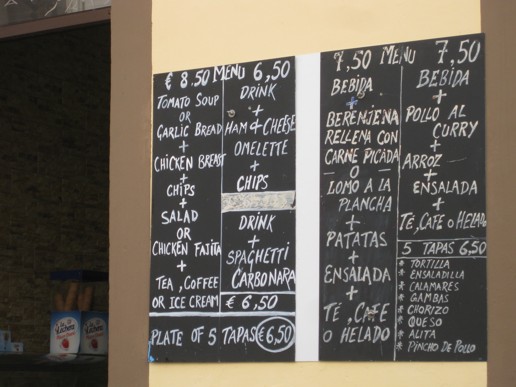 € 8.50 MENU 6,50
TOMATO SOUP
OR
GARLIC BREAD
+
CHICKEN BREAST
+
CHIPS
+
SALAD
OR
CHICKEN FAJITA
+
TEA, COFFEE
OR ICE CREAM
DRINK
+
HAM & CHEESE
OMELETTE
+
CHIPS
DRINK
+
SPAGHETTI
CARBONARA
€ 6,50
PLATE OF 5 TAPAS €6,50
7,50 MENU 7,50
BEBIDA
+
BERENJENA
RELLENA CON
CARNE PICADA
O
LOMO A LA
PLANCHA
+
PATATAS
+
ENSALADA
+
TÉ, CAFE
O HELADO
BEBIDA
+
POLLO AL
CURRY
+
ARROZ
+
ENSALADA
+
TÉ, CAFE O HELADO
5 TAPAS 6,50
* TORTILLA
* ENSALADILLA
* CALAMARES
* GAMBAS
* CHORIZO
* QUESO
* ALITA
* PINCHO DE POLLO